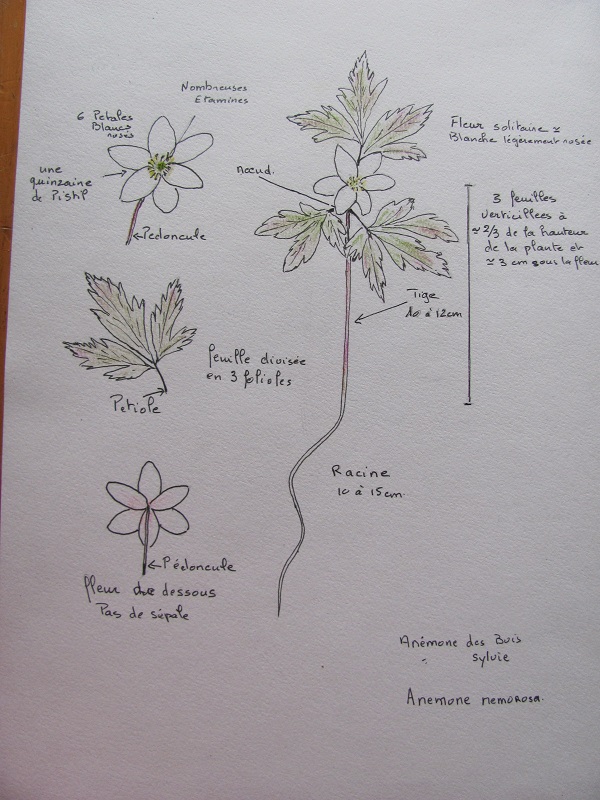 Nombreuses
Etamines
6 Petales
Blancs
rosés
une
quinzaine
de Pistil
Pédoncule
nœud.
Fleur solitaire ≃
Blanche légèrement rosée
3 feuilles
verticillées à
≃ 2/3 de la hauteur
de la plante et
≃ 3 cm sous la fleur
Tige
10 à 12cm
feuille divisée
en 3 folioles
Petiole
Racine
10 à 15cm.
Pédoncule
fleur de dessous
Pas de sépale
Anémone des Bois
Sylvie
Anemone nemorosa.